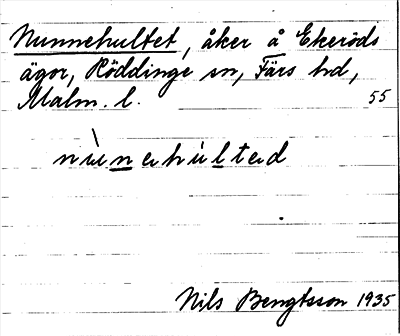 Nunnehultet, åker å Ekeröds
ägor, Röddinge sn, Färs hd,
Malm. l. 55
nùnehùlted
Nils Bengtsson 1935